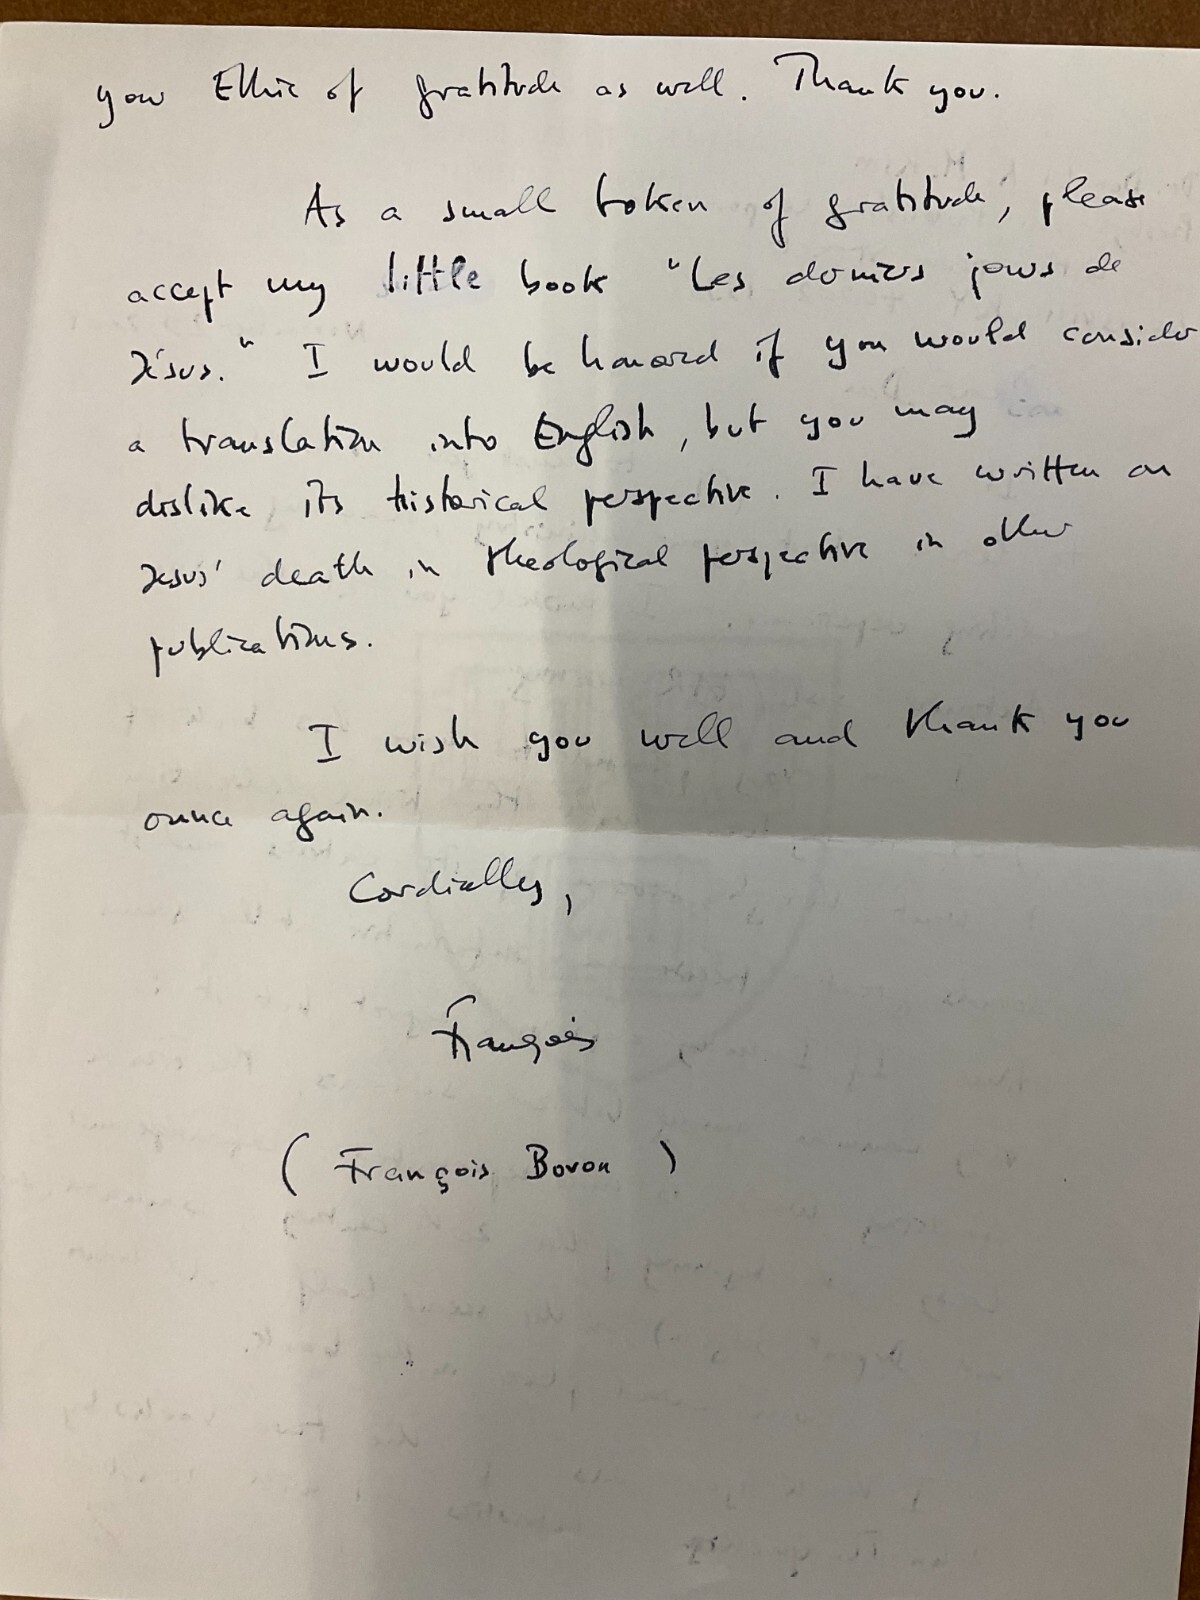 your Ethic of gratitude as well. Thank you.
As a small token of gratitude, please
accept my little book "Les derniers jours de
Jésus." I would be honored if you would consider
a translation into English, but you may
dislike its historical perspective. I have written on
Jesus' death in theological perspective in other
publications.
I wish you well and thank you
once again.
Cordially,
François
(François Bovon)